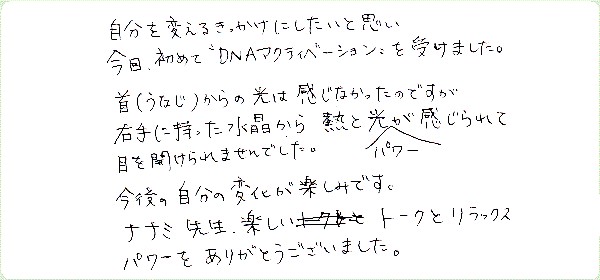 自分を変えるきっかけにしたいと思い
今回、初めて“DNAアクティベーション”を受けました。
首(うなじ)からの光は感じなかったのですが
右手に持った水晶から 熱と光が感じられて
パワー
目を開けられませんでした。
今後の自分の変化が楽しみです。
ナナミ先生、楽しい トークとリラックス
パワーをありがとうございました。